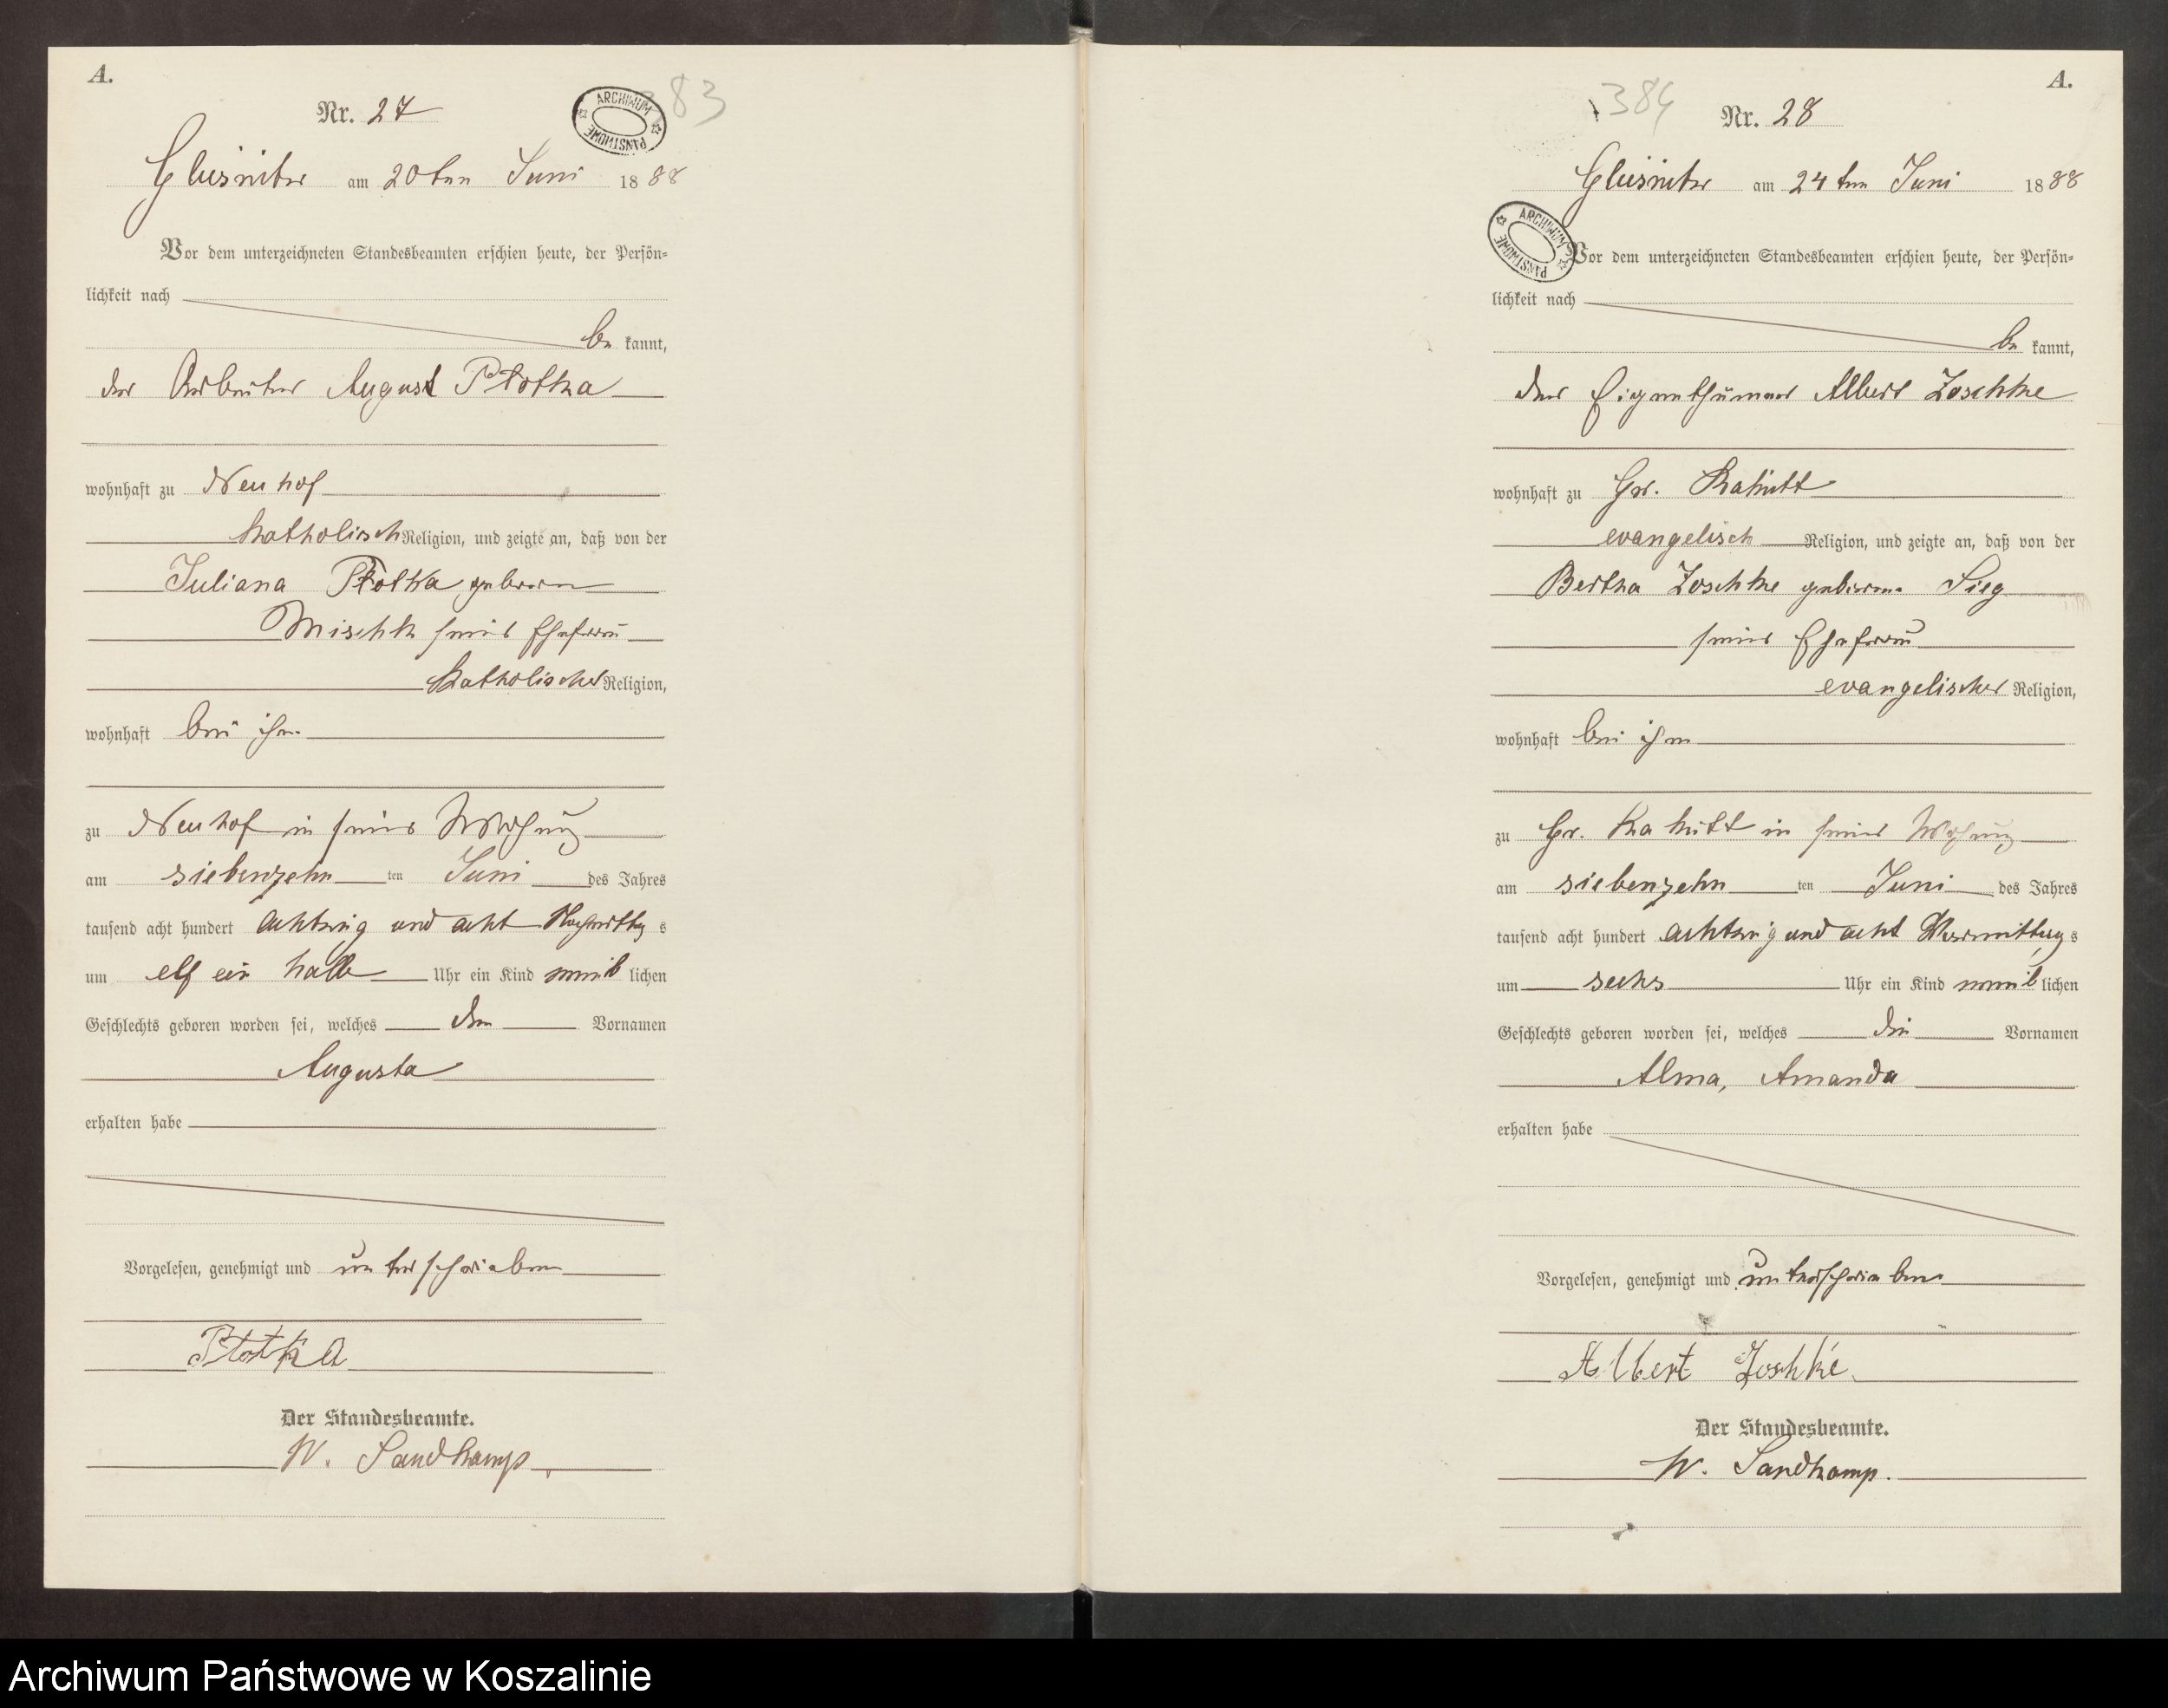 A.
Nr. 27
383
ARCHIWUM PAŃSTWOWE
am 20ten Juni 1888
Vor dem unterzeichneten Standesbeamten erschien heute, der Persön=
lichkeit nach
be kannt,
der Arbeiter August Płotka
wohnhaft zu Neuhof
katholisch Religion, und zeigte an, daß von der
Juliana Płotka geborene
seiner Ehefrau
katholischer Religion,
wohnhaft bei ihm
zu Neuhof in seiner Wohnung
am siebenzehn ten Juni des Jahres
tausend acht hundert achtzig und acht Nachmittag s
um elf ein halb Uhr ein Kind weib lichen
Geschlechts geboren worden sei, welches den Vornamen
Augusta
erhalten habe
Vorgelesen, genehmigt und unterschrieben
Płotka
Der Standesbeamte.
W. Sandkamp
A.
384
Nr. 28
am 24ten Juni 1888
ARCHIWUM PAŃSTWOWE
Vor dem unterzeichneten Standesbeamten erschien heute, der Persön=
lichkeit nach
be kannt,
der Eigenthümer Albert Zoschke
wohnhaft zu Gr.
evangelisch Religion, und zeigte an, daß von der
Bertha Zoschke geborene Sieg
seiner Ehefrau
evangelischer Religion,
wohnhaft bei ihm
zu Gr. in seiner Wohnung
am siebenzehn ten Juni des Jahres
tausend acht hundert achtzig und acht Vormittag s
um sechs Uhr ein Kind weib lichen
Geschlechts geboren worden sei, welches die Vornamen
Alma, Amanda
erhalten habe
Vorgelesen, genehmigt und unterschrieben
Albert Zoschke
Der Standesbeamte.
W. Sandkamp.
Archiwum Państwowe w Koszalinie